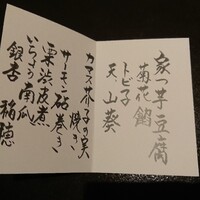 家つ芋豆腐
菊花餡
トビ子
天、山葵
カマス芥子の実
焼き
サーモン砧巻き
栗渋皮煮
いちょう南瓜
銀杏 稲穂